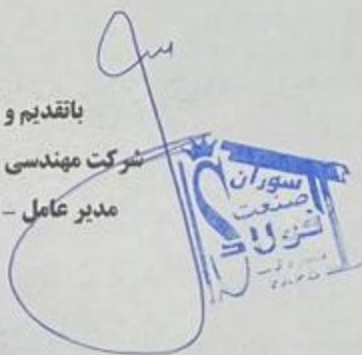 باتقدیم و
شرکت مهندسی
مدیر عامل -
سوران
صنعت